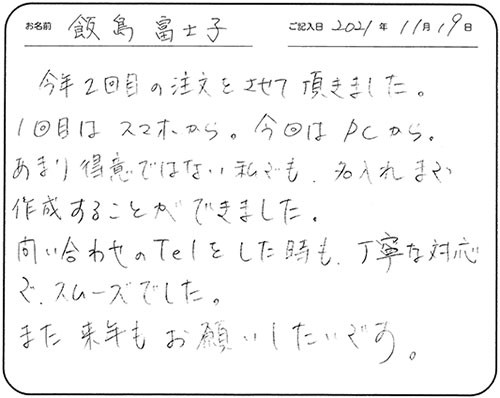 お名前 飯島富士子 ご記入日 2021年11月19日
今年2回目の注文をさせて頂きました。
1回目はスマホから。今回はPCから。
あまり得意ではない私でも、名入れまで
作成することができました。
問い合わせのTelをした時も、丁寧な対応
で、スムーズでした。
また来年もお願いしたいです。